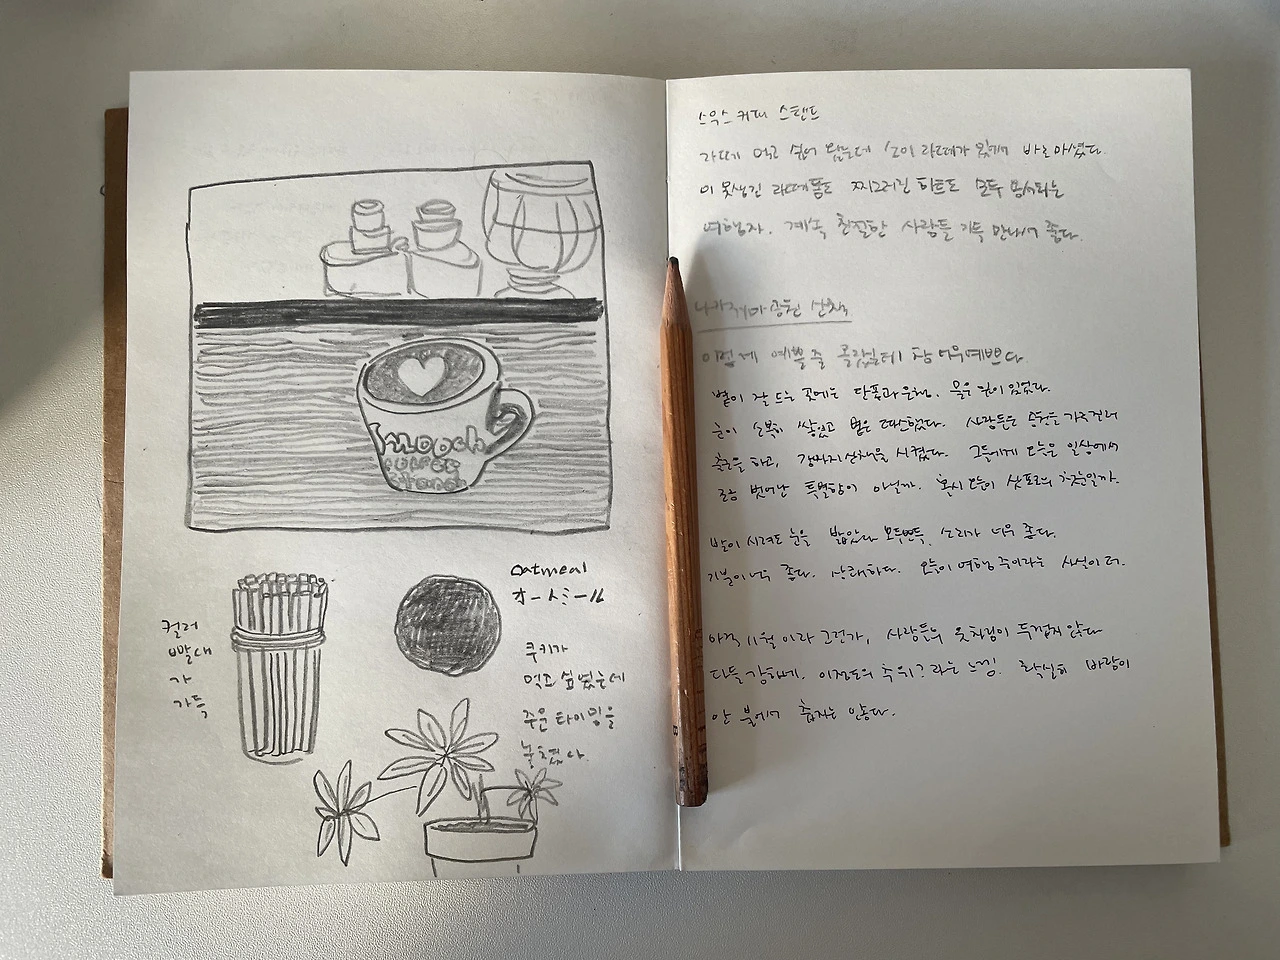 Knopch
coffee
stand
컬러
빨대
가
가득
oatmeal
オートミール
쿠키가
먹고 싶었는데
주문 타이밍을
놓쳤다.
커피 스탠드
라떼 먹고 싶어 왔는데 소이 라떼가 있어서 바로 마셨다.
이 못생긴 라떼 폼도 찌그러진 하트도 모두 용서되는
여행자. 계속 친절한 사람들 가득 만나서 좋다.
나카지마 공원 산책
이렇게 예쁠 줄 몰랐는데 참 너무 예쁘다.
볕이 잘 드는 곳에는 단풍과 은행, 물든 잎이 있었다.
눈이 소복히 쌓였고 볕은 따스했다. 사람들은 가로질러
출근을 하고, 강아지 산책을 시켰다. 그들에게 오늘은 일상에서
조금 벗어난 특별함이 아닐까. 혹시 오늘이 삿포로의 첫눈일까.
발이 시려도 눈을 밟았다 뽀두번뜩, 소리가 너무 좋다.
기분이 너무 좋다. 상쾌하다. 오늘이 여행 중이라는 사실이 더.
아직 11월이라 그런가, 사람들의 옷차림이 두껍지 않다
다들 강하네. 이 정도의 추위? 라는 느낌. 확실히 바람이
안 불어서 춥지는 않다.